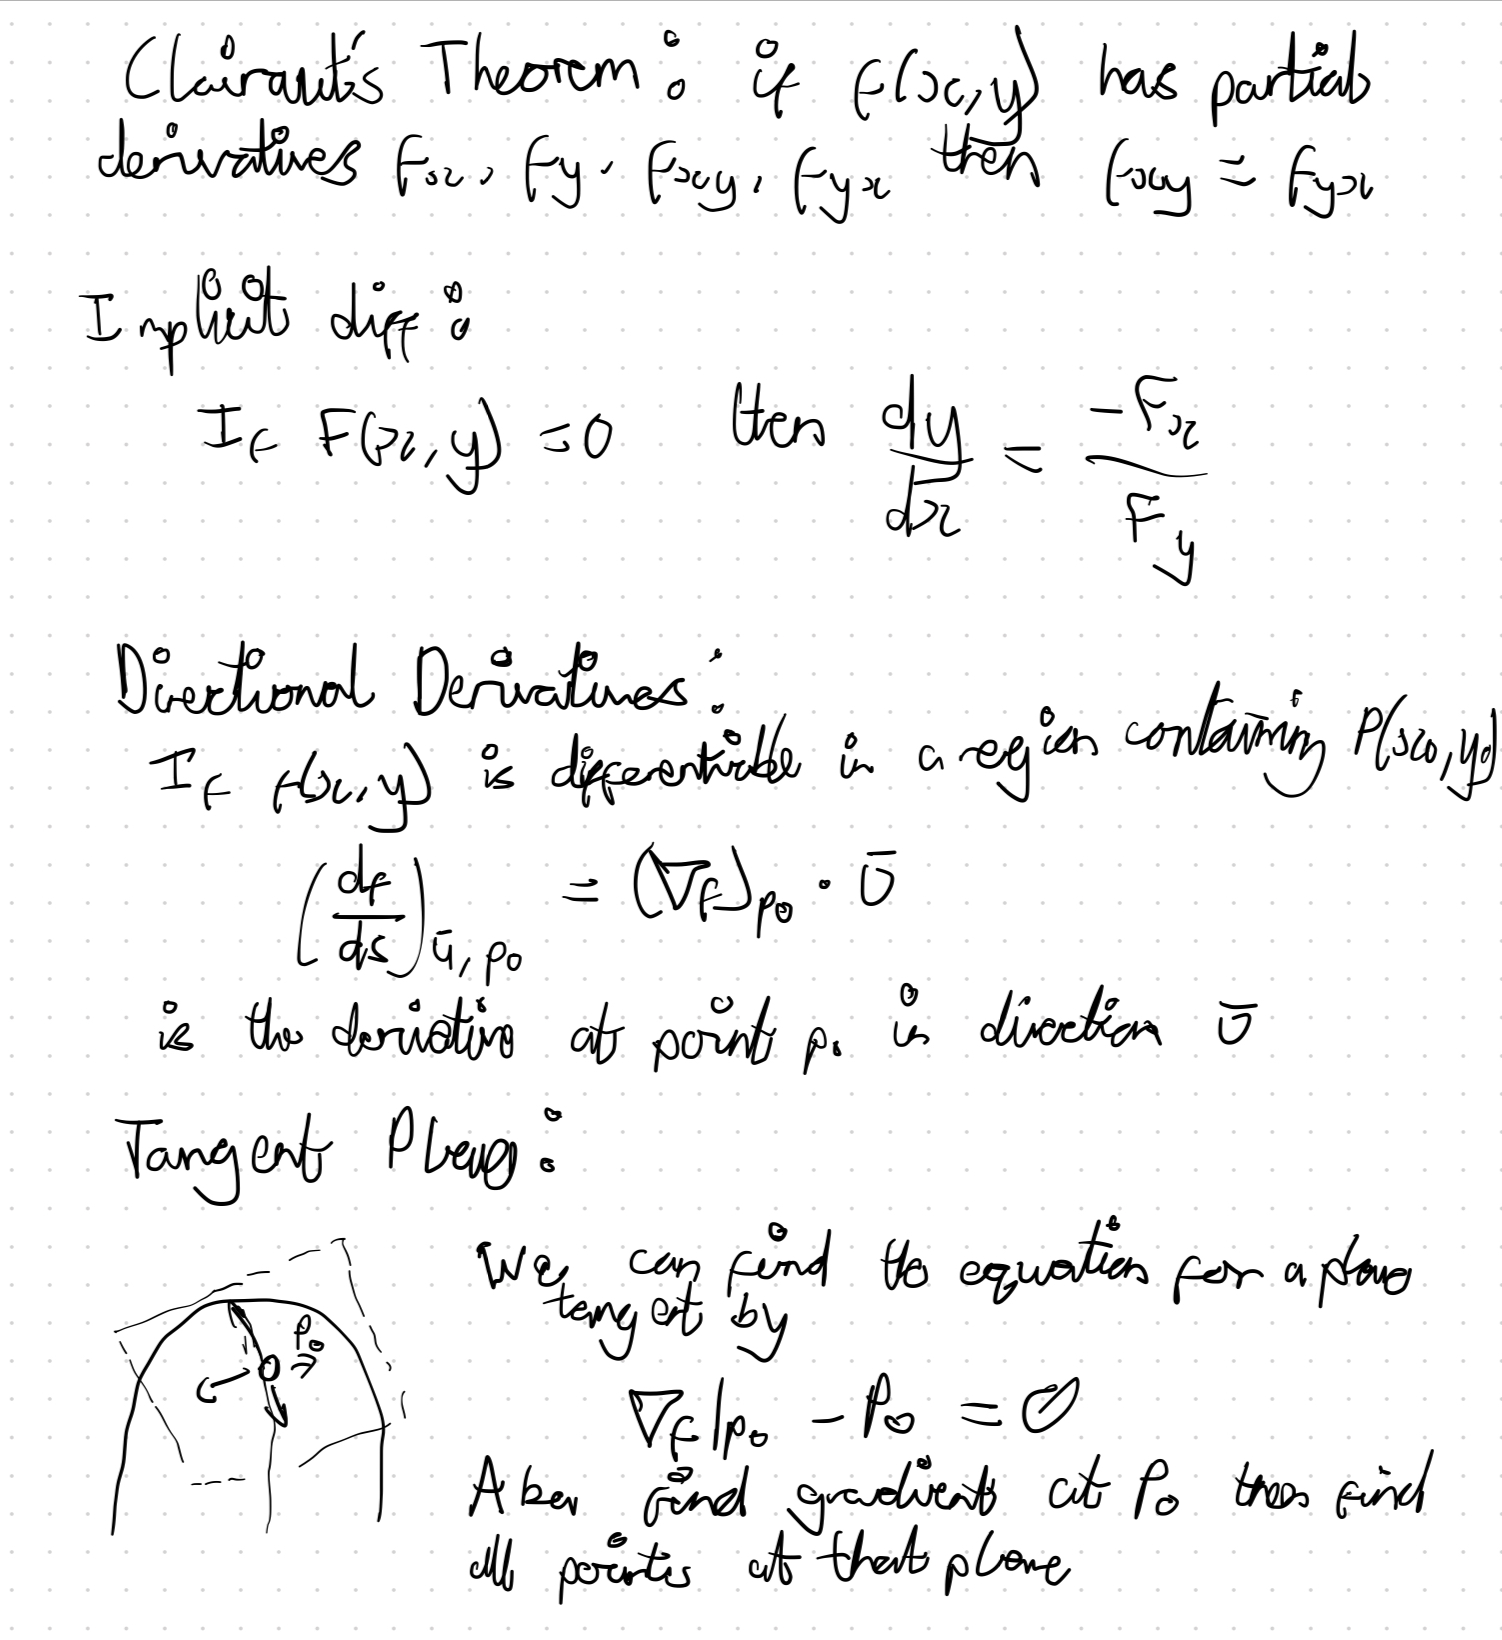 Clairaut's Theorem: if f(x,y) has partial
derivatives fx, fy, fxy, fyx then fxy = fyx
Implicit diff:
If F(x,y) = 0 then dy/dx = -Fx/Fy
Directional Derivatives:
If f(x,y) is differentiable in a region containing P(x₀,y₀)
(df/ds)ū,p₀ = (∇f)p₀ · ū
is the derivative at point p₀ in direction ū
Tangent Plane:
We can find the equation for a plane
tangent by
P₀
∇f|p₀ - P₀ = 0
find gradient at P₀ then find
all points at that plane